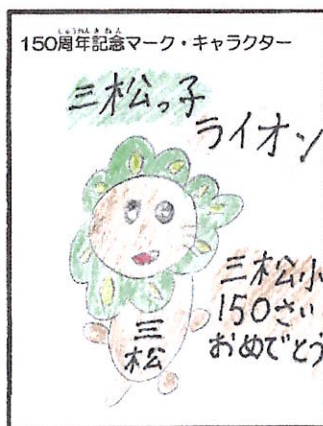 150周年記念マーク・キャラクター
三松っ子
ライオン
三松小
150さい
おめでとう
三
松